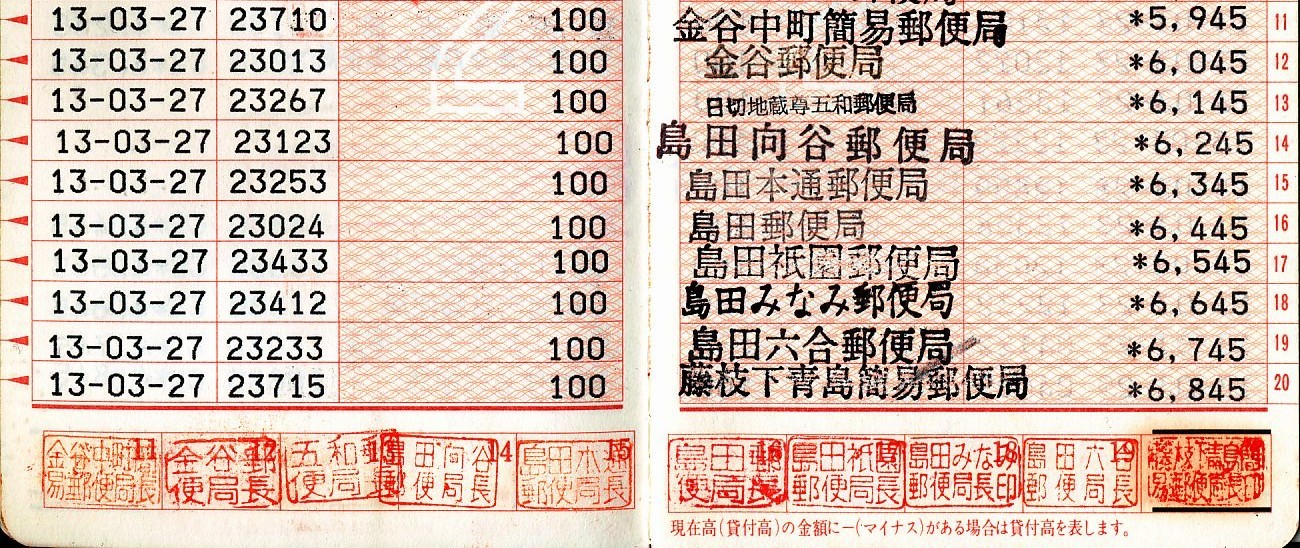 13-03-27 23710 100 金谷中町簡易郵便局 *5,945 11
13-03-27 23013 100 金谷郵便局 *6,045 12
13-03-27 23267 100 日切地蔵尊五和郵便局 *6,145 13
13-03-27 23123 100 島田向谷郵便局 *6,245 14
13-03-27 23253 100 島田本通郵便局 *6,345 15
13-03-27 23024 100 島田郵便局 *6,445 16
13-03-27 23433 100 島田祇園郵便局 *6,545 17
13-03-27 23412 100 島田みなみ郵便局 *6,645 18
13-03-27 23233 100 島田六合郵便局 *6,745 19
13-03-27 23715 100 藤枝下青島簡易郵便局 *6,845 20
金谷中町簡 11 金谷郵 12 五和郵 13 田向谷 14 島田本通 15 島田郵 16 島田祇園 17 島田みなみ 18 島田六合 19
易郵便局長 便局長 便局 郵便局長 郵便局長 便局長 郵便局長 郵便局長印 郵便局長
現在高(貸付高)の金額に−(マイナス)がある場合は貸付高を表します。